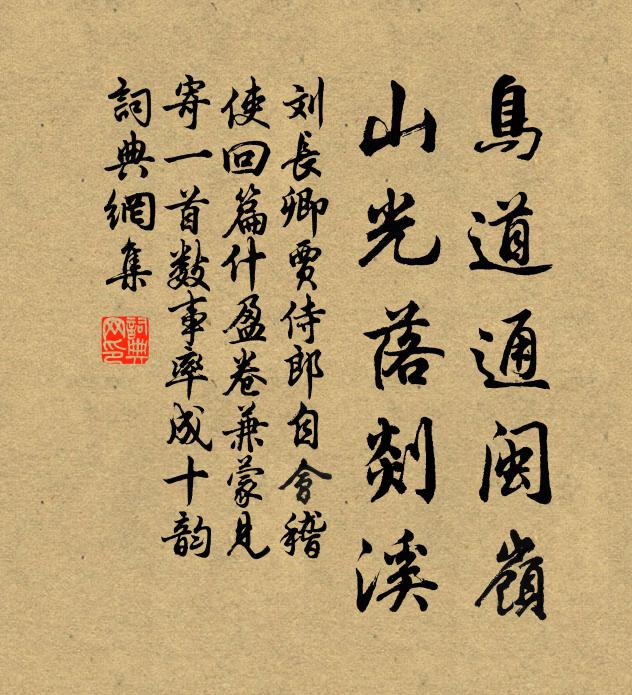 鳥道通閩嶺
山光落剡溪
刘長卿賈侍郎自會稽
使回篇什盈卷兼蒙見
寄一首数事率成十韵
詞典網集
詞典網印